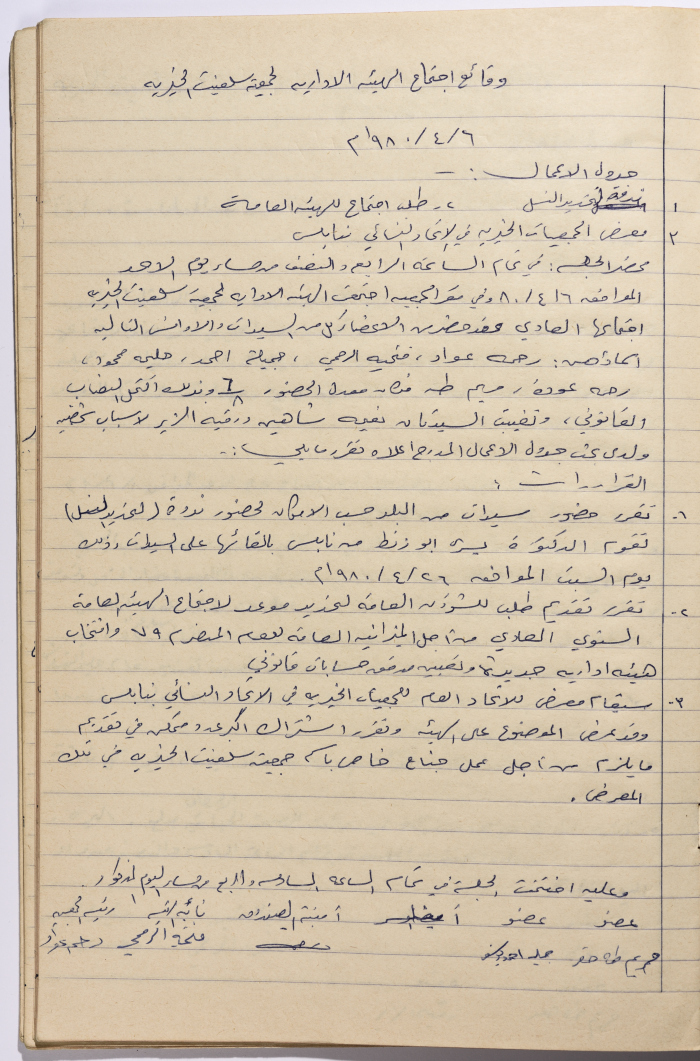 وقائع اجتماع الهيئه الاداريه لجمعية سلفيت الخيريه
٦/٤/١٩٨٠م
جدول الاعمال :-
١ ندوة لتحديد النسل ٢- طلب اجتماع للهيئه العامة
٣ معرض الجمعيات الخيريه في الاتحاد النسائي بنابلس
محضر الجلسه : في تمام الساعة الرابعه والنصف من مساء يوم الاحد
الموافق ٦/٤/٨٠ وفي مقر الجمعيه اجتمعت الهيئه الاداريه لجمعية سلفيت الخيريه
اجتماعها العادي وقد حضر من الاعضاء كل من السيدات والاوانس التاليه
اسماؤهن : رحمه عواد ، فتحيه الرمحي ، جميلة احمد ، حليمه محمود ،
رحمه عودة ، مريم طه فكان معدل الحضور ٦/٨ وبذلك اكتمل النصاب
القانوني ، وتغيبت السيدتان نعيمه شاهين ورقيه الزير لاسباب شخصيه
ولدى بحث جدول الاعمال المدرج اعلاه تقرر مايلي :-
القرارات :
١- تقرر حضور سيدات من البلد حسب الامكان لحضور ندوة (لتحديد النسل)
تقوم الدكتورة يسرى ابو زنط من نابلس بالقائها على السيدات وذلك
يوم السبت الموافق ٢٦/٤/١٩٨٠م .
٢- تقرر تقديم طلب للشؤون العامة لتحديد موعد لاجتماع الهيئه العامة
السنوي العادي من اجل الميزانيه العامة للعام المنصرم ٧٩ وانتخاب
هيئه اداريه جديدة وتعيين مدقق حسابات قانوني
٣- سيقام معرض للاتحاد العام للجمعيات الخيريه في الاتحاد النسائي بنابلس
وقد عرض الموضوع على الهيئه وتقرر اشتراك اكبر عدد ممكن في تقديم
مايلزم من اجل عمل جناح خاص باسم جمعية سلفيت الخيريه في ذلك
المعرض .
وعليه اختتمت الجلسة في تمام الساعه السادسه والربع من مساء اليوم المذكور .
عضو عضو امينة الصندوق نائبه الرئيسه رئيسه الجمعيه
مريم طه جميله احمد فتحية الرمحي رحمه عواد